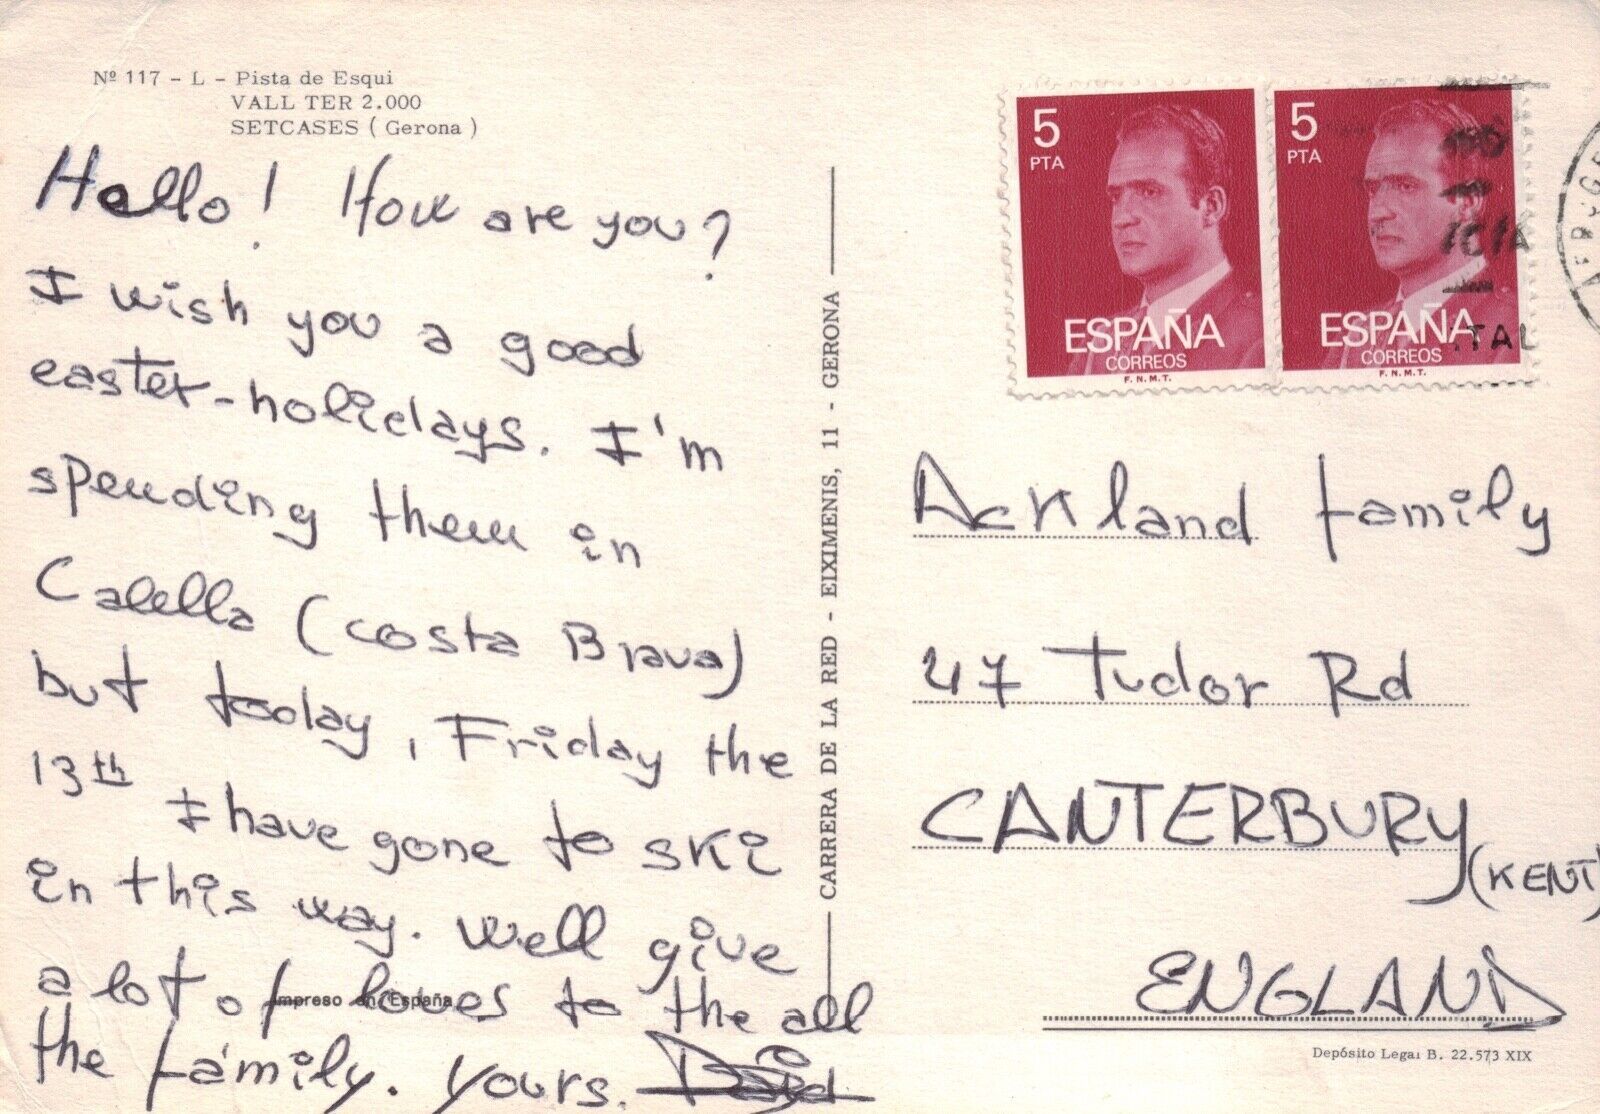 Nº 117 - L - Pista de Esqui
VALL TER 2.000
SETCASES ( Gerona )
Hello! How are you?
I wish you a good
easter-holidays. I'm
spending them in
Calella (costa Brava)
but today, Friday the
13th I have gone to ski
in this way. Well give
a lot of loves to the all
the family. Yours. David
Impreso en España
CARRERA DE LA RED - EIXIMENIS, 11 - GERONA
5
PTA
ESPAÑA
CORREOS
F.N.M.T.
5
PTA
ESPAÑA
CORREOS
F.N.M.T.
Ackland family
47 Tudor Rd
CANTERBURY
(KENT)
ENGLAND
Depósito Legal B. 22.573 XIX